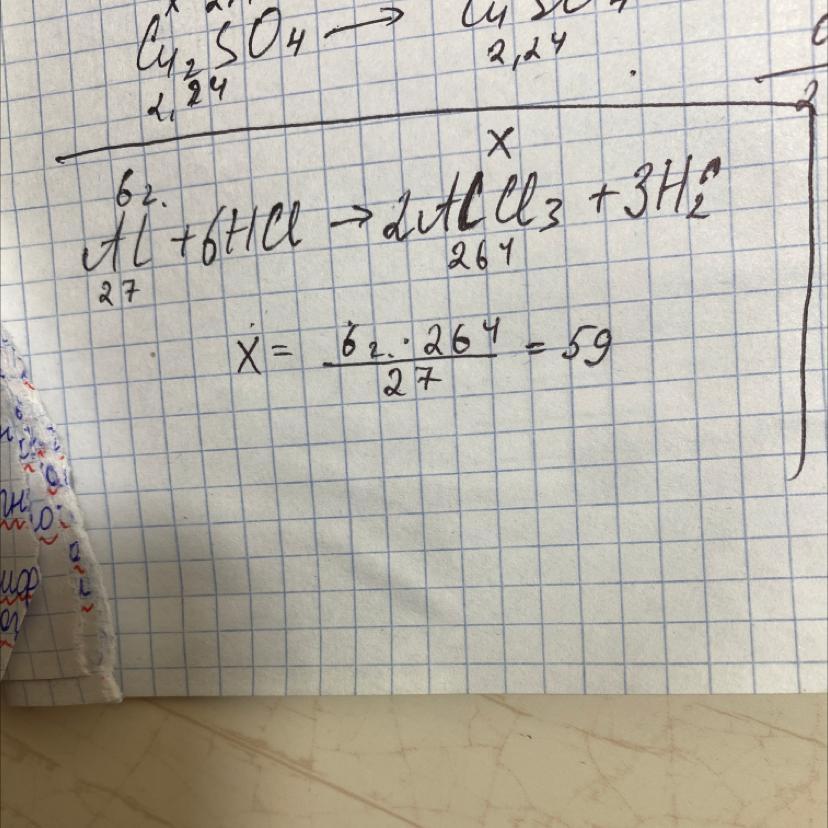 Cu₂SO₄ → Cu SO₄
2,24 2,24
2
6г. X
Al + 6HCl → 2AlCl₃ + 3H₂↑
27 264
X = 6г. · 264 / 27 = 59